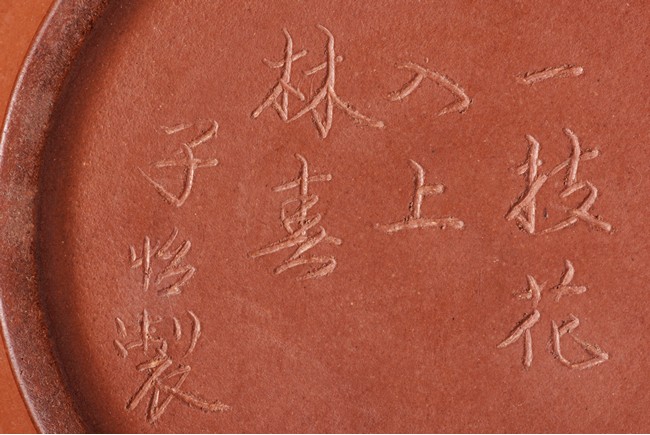 一技花
入上
林喜
子怡製